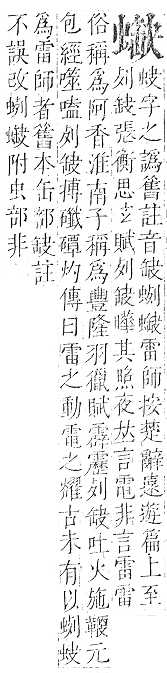 字之譌舊註音缺蜊雷師按楚辭遠遊篇上至
列缺張衡思玄賦列缺曄其照夜𠀤言電非言雷雷
俗稱爲阿香淮南子稱爲豐隆羽獵賦霹靂列缺吐火施鞭元
包經噬嗑列缺磹灼傳曰雷之動電之耀古未有以蜊
爲雷師者舊本缶部缺註
不誤改蜊附虫部非